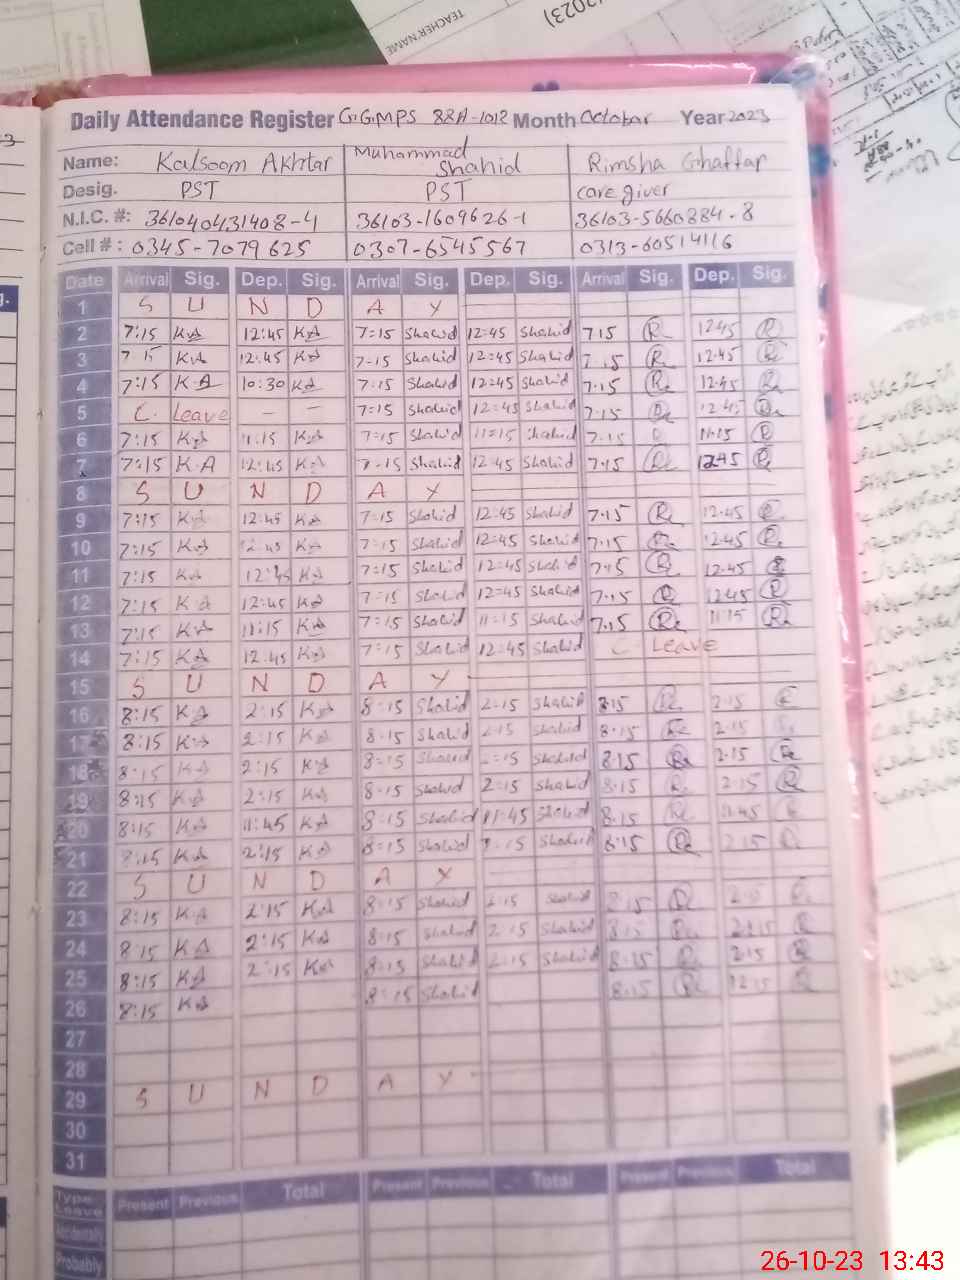 TEACHER NAME
2023)
Daily Attendance Register G.G.M.P.S 88A-1012 Month Octobar Year 2023
Name: Kalsoom Akhtar Muhammad Shahid Rimsha Ghaffar
Desig. PST PST care giver
N.I.C. #: 361040431408-4 36103-1609626-1 36103-5660884-8
Cell #: 0345-7079625 0307-6545567 0313-60514116
Date Arrival Sig. Dep. Sig. Arrival Sig. Dep. Sig. Arrival Sig. Dep. Sig.
1 S U N D A Y
2 7:15 KA 12:45 KA 7=15 Shahid 12=45 Shahid 7.15 R 12.45 R
3 7 15 KA 12:45 KA 7=15 Shahid 12=45 Shahid 7.15 R 12.45 R
4 7:15 KA 10:30 KA 7=15 Shahid 12=45 Shahid 7.15 R 12.45 R
5 C. Leave - - 7=15 Shahid 12=45 Shahid 7.15 R 12.45 R
6 7:15 KA 11:15 KA 7=15 Shahid 11=15 Shahid 7.15 R 11.15 R
7 7:15 K.A 12:45 KA 7=15 Shahid 12=45 Shahid 7.15 R 12.45 R
8 S U N D A Y
9 7:15 KA 12:45 KA 7=15 Shahid 12=45 Shahid 7.15 R 12.45 R
10 7:15 KA 12:45 KA 7=15 Shahid 12=45 Shahid 7.15 R 12.45 R
11 7:15 KA 12:45 KA 7=15 Shahid 12=45 Shahid 7.15 R 12.45 R
12 7:15 KA 12:45 KA 7=15 Shahid 12=45 Shahid 7.15 R 12.45 R
13 7:15 KA 11:15 KA 7=15 Shahid 11=15 Shahid 7.15 R 11.15 R
14 7:15 KA 12:45 KA 7=15 Shahid 12=45 Shahid C. Leave
15 S U N D A Y
16 8:15 KA 2:15 KA 8=15 Shahid 2=15 Shahid 8.15 R 2.15 R
17 8:15 KA 2:15 KA 8=15 Shahid 2=15 Shahid 8.15 R 2.15 R
18 8:15 KA 2:15 KA 8=15 Shahid 2=15 Shahid 8.15 R 2.15 R
19 8:15 KA 2:15 KA 8=15 Shahid 2=15 Shahid 8.15 R 2.15 R
20 8:15 KA 11:45 KA 8=15 Shahid 11=45 Shahid 8.15 R 11.45 R
21 8:15 KA 2:15 KA 8=15 Shahid 15 Shahid 8.15 R 2.15 R
22 S U N D A Y
23 8:15 KA 2:15 KA 8=15 Shahid 2=15 Shahid 8.15 R R
24 8:15 KA 2:15 KA 8=15 Shahid 2=15 Shahid 8.15 R 2.15 R
25 8:15 KA 2:15 KA 8=15 Shahid 2=15 Shahid 8.15 R 2.15 R
26 8:15 KA 8=15 Shahid 8.15 R 12.15 R
27
28
29 S U N D A Y
30
31
Type Leave Present Previous Total Present Previous Total Present Previous Total
Accidentally
Probably
26-10-23 13:43